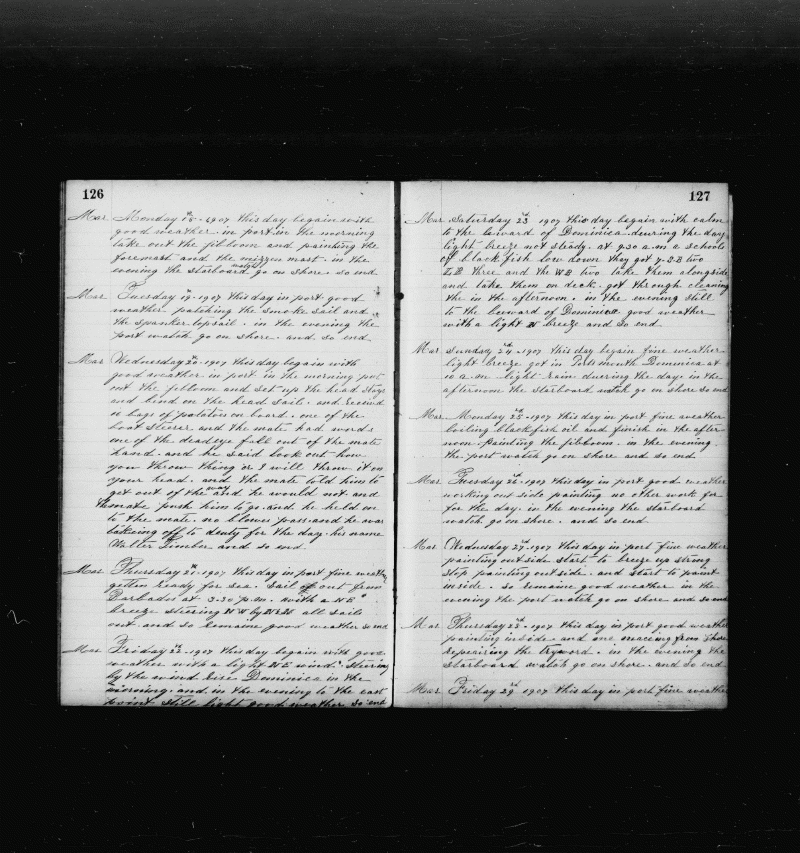 126
Mar Monday 18th 1907 this day begain with
good weather in port in the morning
take out the jibboom and painting the
foremast and the mizzen mast. in the
evening the starboard watch go on shore. so end
Mar Tuesday 19th 1907 this day in port good
weather patching the smoke sail and
the spanker topsail. in the evening the
port watch go on shore. and so end.
Mar Wednesday 20th 1907 this day begain with
good weather in port in the morning put
out the jibboom and set up the head stays
and bend on the head sail. and received
bags of potatoes on board. one of the
boat steerer and the mate had words
one of the deadeye fall out of the mate
hand. and he said look out how
you throw thing or I will throw it on
your head. and the mate told him to
get out of the way and he would not and
the mate push him to go. and he held on
to the mate. no blows pass. and he was
off to duty for the day. his name
Walter and so end.
Mar Thursday 21st 1907 this day in port fine weather
gotten ready for sea. Sail out from
Barbados at 3-30 p.m. with a NE
breeze stering NW by N all sails
out and so remaine good weather so end
Mar Friday 22nd 1907 this day begain with good
weather with a light NE wind. stering
by the wind. rise Dominica in the
morning. and in the evening to the east
point still light good weather so end
127
Mar Saturday 23rd 1907 this day begain with calm
to the leward of Dominica. during the day
light breeze not steady. at 9.30 a.m a schools
of blackfish low down they got 7. S.B two
L.B three and the W.B two take them alongside
and take them on deck. got through cleaning
the in the afternoon. in the evening still
to the leeward of Dominica good weather
with a light N breeze and so end.
Mar Sunday 24th 1907 this day begain fine weather
light breeze got in Portsmouth Dominica at
10 a.m. light rain during the day. in the
afternoon the starboard watch go on shore so end
Mar Monday 25th 1907 this day in port fine weather
boiling blackfish oil and finish in the after
noon. painting the jibboom. in the evening
the port watch go on shore and so end.
Mar Tuesday 26th 1907 this day in port good weather
working out side painting no other work for
for the day. in the evening the starboard
watch go on shore. and so end.
Mar Wednesday 27th 1907 this day in port fine weather
painting out side start to breeze up strong
stop painting out side. and start to paint
inside. so remaine good weather in the
evening the port watch go on shore and so end
Mar Thursday 28th 1907 this day in port good weather
painting inside and one from shore
repairing the tryword. in the evening the
starboard watch go on shore. and so end
Mar Friday 29th 1907 this day in port fine weather